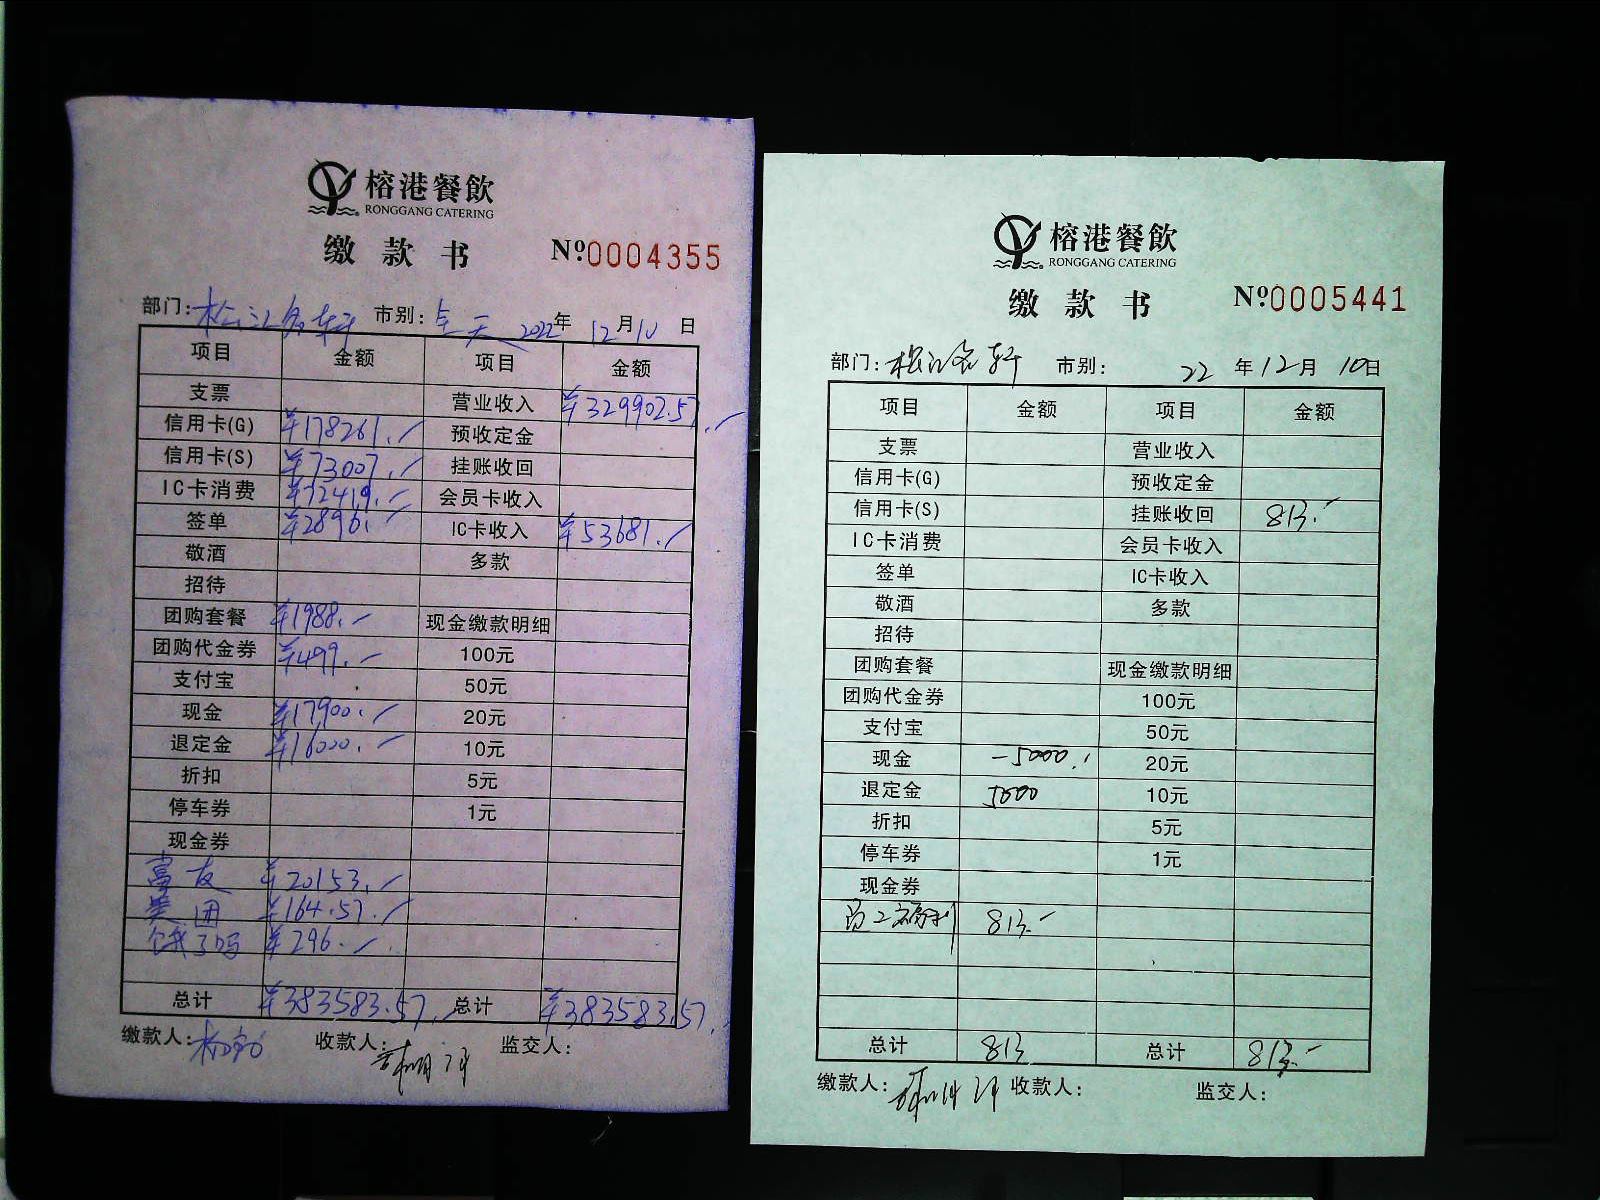 榕港餐飲
RONGGANG CATERING
缴款书 Nº0004355
部门: 松江名轩 市别: 全天 2022年12月10日
项目 金额 项目 金额
支票 营业收入 ¥329902.57
信用卡(G) ¥178261.- 预收定金
信用卡(S) ¥73007.- 挂账收回
IC卡消费 ¥72419.- 会员卡收入
签单 ¥2896.- IC卡收入 ¥53681.-
敬酒 多款
招待
团购套餐 ¥1988.- 现金缴款明细
团购代金券 ¥499.- 100元
支付宝 50元
现金 ¥17900.- 20元
退定金 ¥16000.- 10元
折扣 5元
停车券 1元
现金券
富友 ¥20153.-
美团 ¥164.57
饿了吗 ¥296.-
总计 ¥383583.57 总计 ¥383583.57
缴款人: 收款人: 监交人:
榕港餐飲
RONGGANG CATERING
缴款书 Nº0005441
部门: 松江名轩 市别: 22年12月10日
项目 金额 项目 金额
支票 营业收入
信用卡(G) 预收定金
信用卡(S) 挂账收回 813.-
IC卡消费 会员卡收入
签单 IC卡收入
敬酒 多款
招待
团购套餐 现金缴款明细
团购代金券 100元
支付宝 50元
现金 -5000.- 20元
退定金 5000 10元
折扣 5元
停车券 1元
现金券
员工福利 813.-
总计 813 总计 813.-
缴款人: 收款人: 监交人: